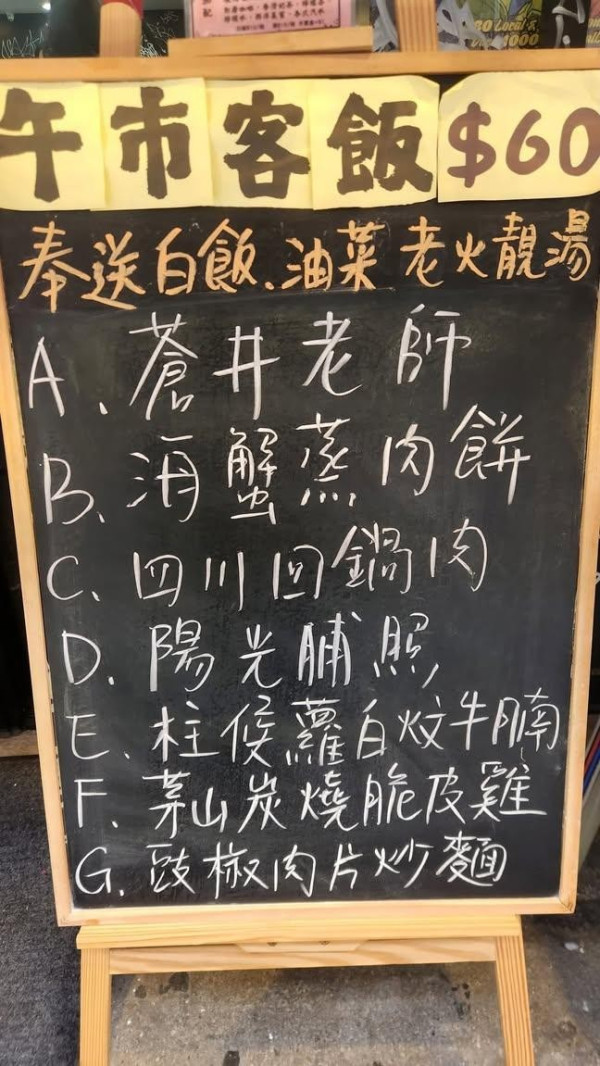 午市客飯 $60
奉送白飯、油菜 老火靚湯
A、蒼井老師
B、海蟹蒸肉餅
C、四川回鍋肉
D、陽光脯照
E、柱侯蘿白炆牛腩
F、茶山炭燒脆皮雞
G、豉椒肉片炒麵